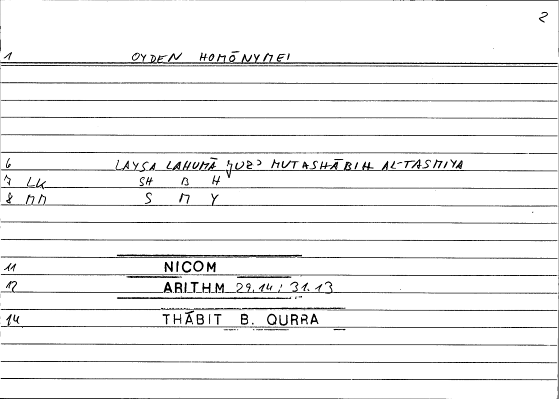 2
1 OYDEN HOMŌNYMEI
6 LAYSA LAHUMĀ ǰUZʾ MUTASHĀBIH AL-TASMIYA
7 LK SH B H
8 MM S M Y
11 NICOM
12 ARITHM 29.14; 31.13
14 THĀBIT B. QURRA